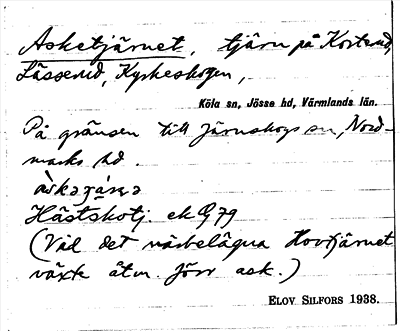 Asketjärnet, tjärn på Korterud,
Lässerud, Kyrkeskogen,
Köla sn, Jösse hd, Värmlands län.
På gränsen till Järnskogs sn, Nord-
marks hd.
Hästskotj. ek
(Vid det närbelägna Hovtjärnet
växte åtm. förr ask.)
ELOV SILFORS 1938.